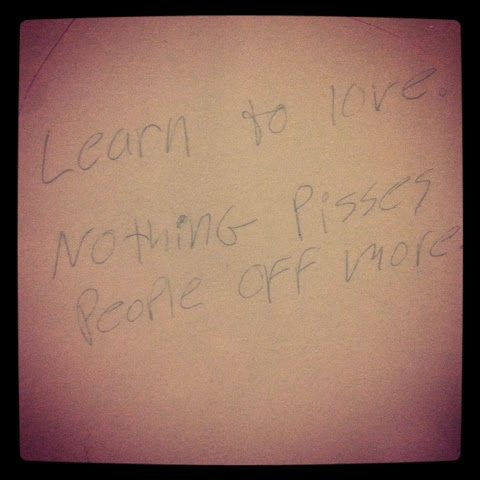 Learn to love.
NothiNG Pisses
People OFF more.